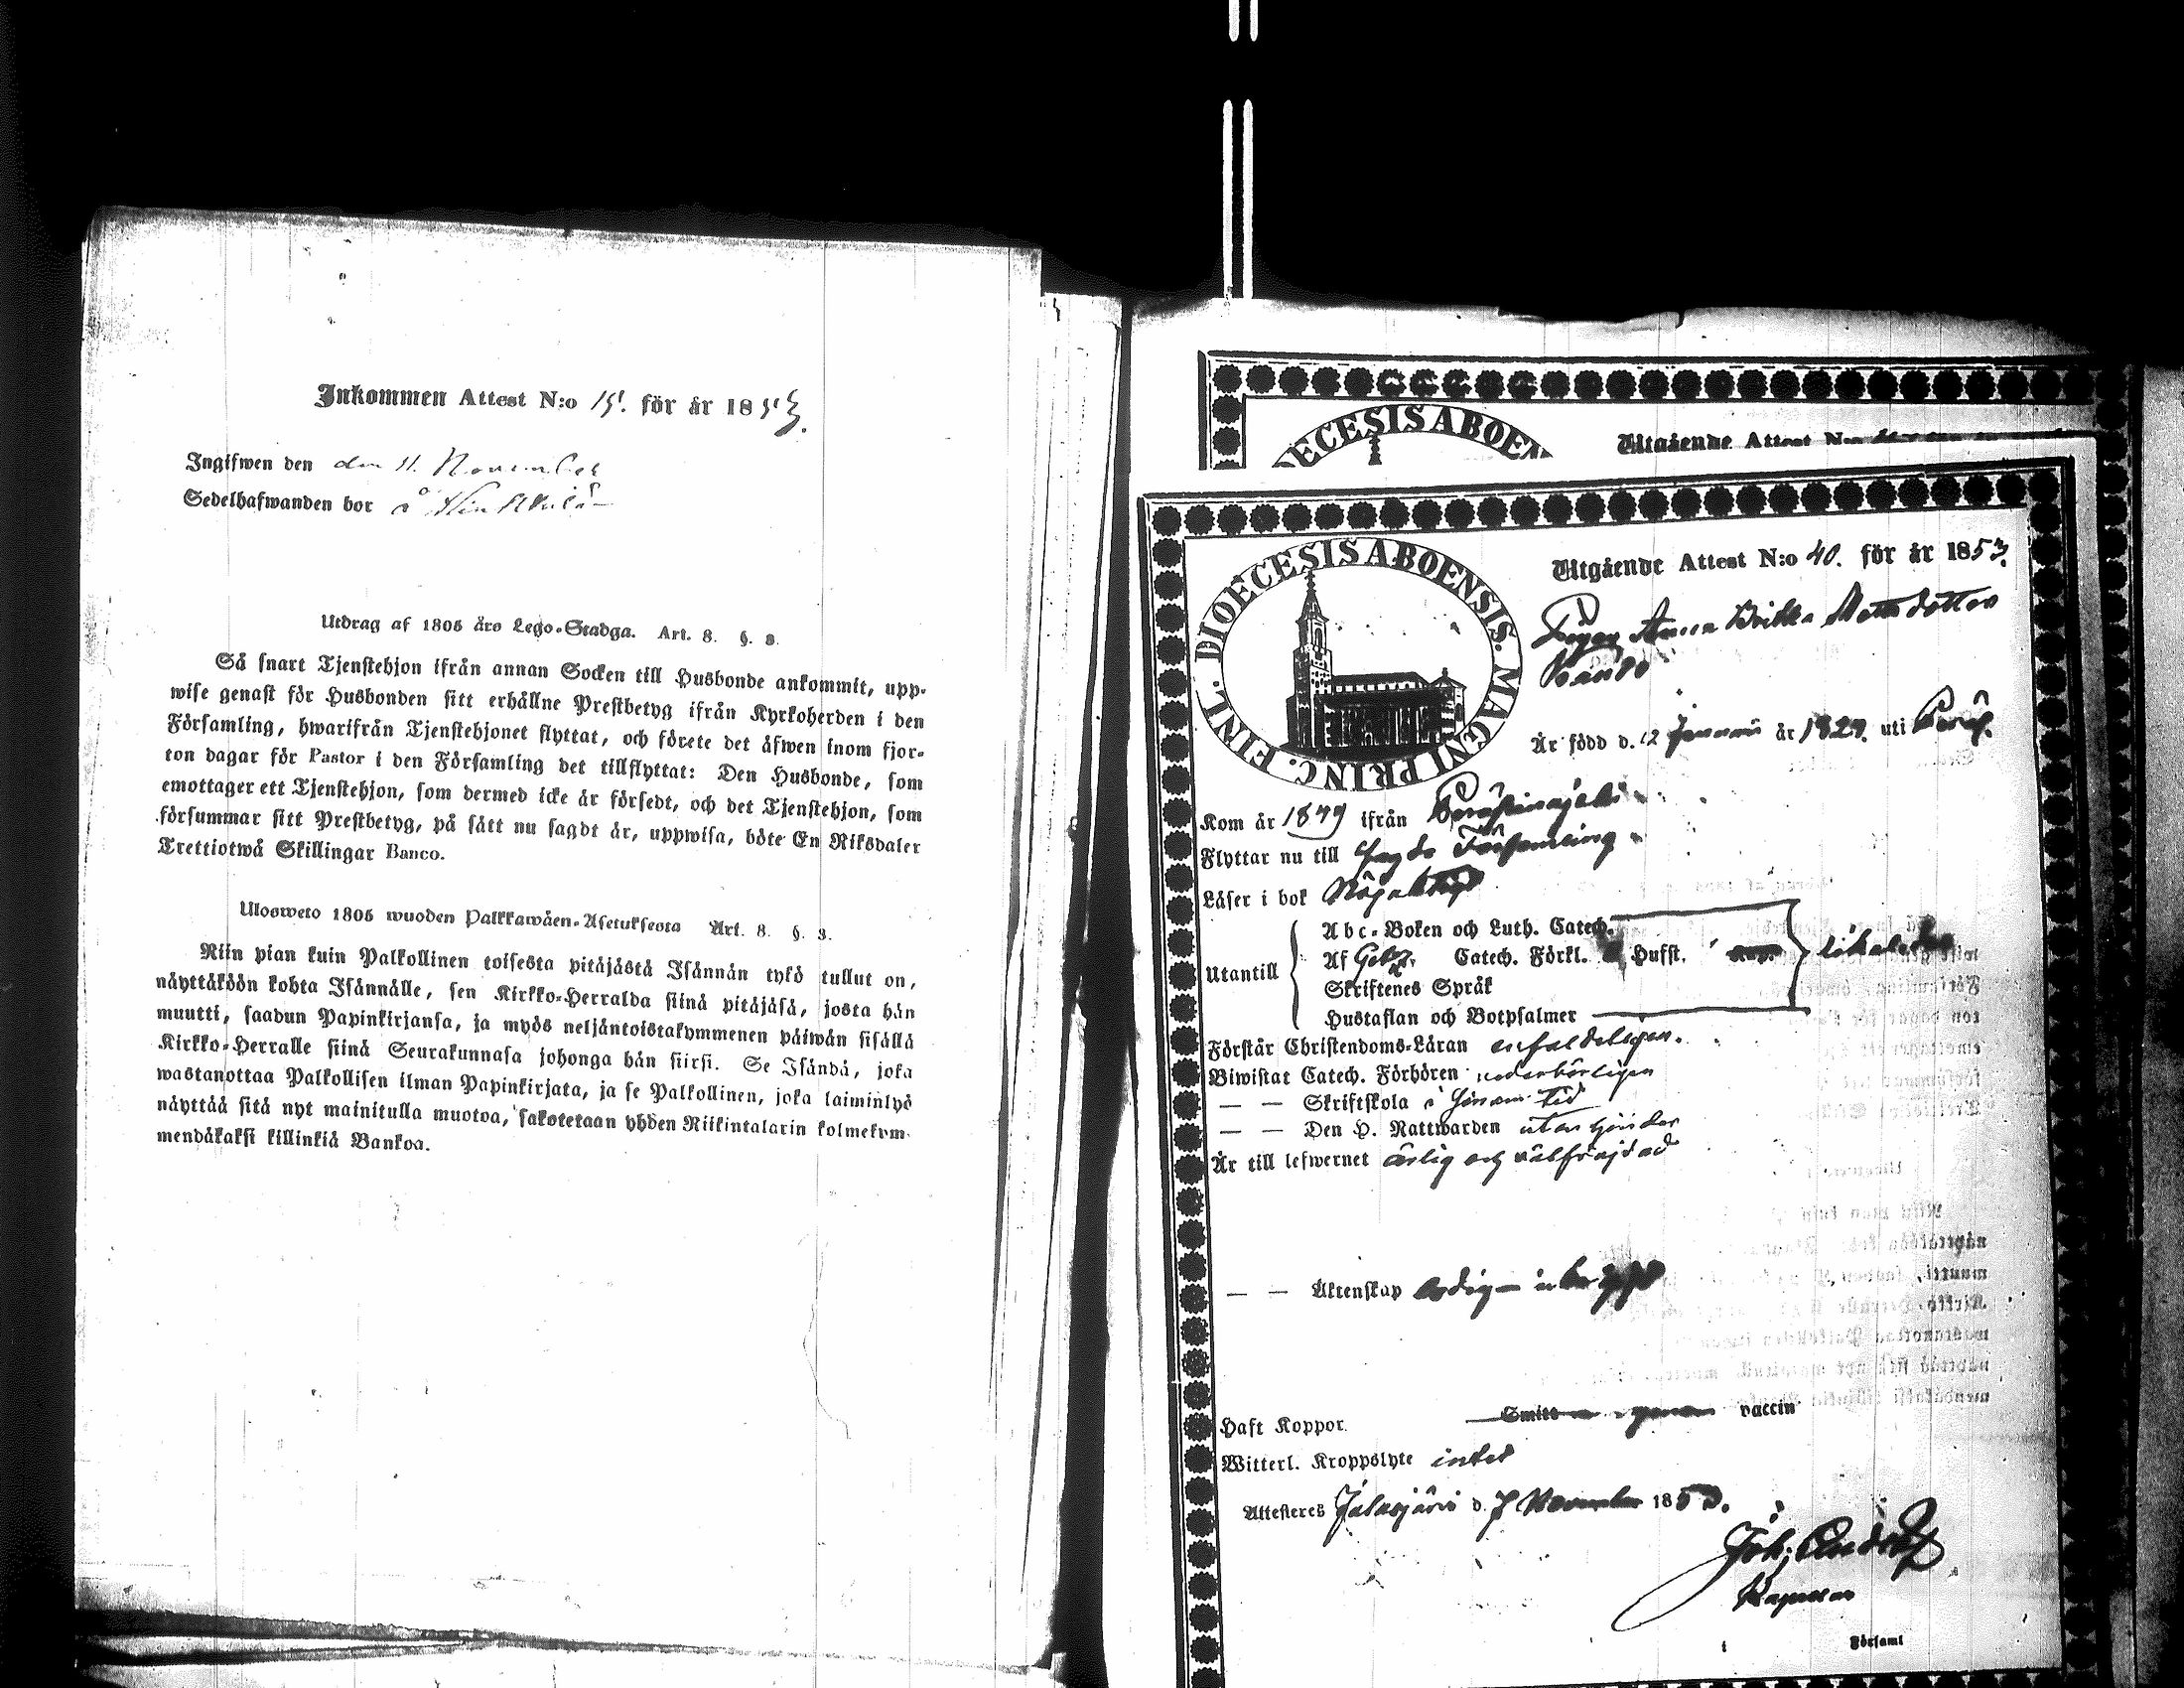 Inkommen Attest N:o 15. för år 1853.
Ingifwen den den 11 November
Sedelhafwanden bor å
Utdrag af 1805 års Lego-Stadga. Art. 8. §. 3.
Så snart Tjenstehjon ifrån annan Socken till Husbonde ankommit, upp-
wise genast för Husbonden sitt erhållne Prestbetyg ifrån Kyrkoherden i den
Församling, hwarifrån Tjenstehjonet flyttat, och förete det äfwen inom fjor-
ton dagar för Pastor i den Församling det tillflyttat: Den Husbonde, som
emottager ett Tjenstehjon, som dermed icke är försedt, och det Tjenstehjon, som
försummar sitt Prestbetyg, på sätt nu sagdt är, uppwisa, böte En Riksdaler
Trettiotwå Skillingar Banco.
Ulosweto 1805 wuoden Palkkawäen-Asetuksesta Art. 8. §. 3.
Niin pian kuin Palkollinen toisesta pitäjästä Isännän tykö tullut on,
näyttäköön kohta Isännälle, sen Kirkko-Herralda siinä pitäjäsä, josta hän
muutti, saadun Papinkirjansa, ja myös neljäntoistakymmenen päiwän sisällä
Kirkko-Herralle siinä Seurakunnasa johonga hän siirsi. Se Isändä, joka
wastanottaa Palkollisen ilman Papinkirjata, ja se Palkollinen, joka laiminlyö
näyttää sitä nyt mainitulla muotoa, sakotetaan yhden Riikintalarin kolmekym-
mendäkaksi killinkiä Bankoa.
DIOECESIS ABOEN
Utgående Attest N:o
DIOECESIS ABOENSIS. MAGNI PRINC. FINL.
Utgående Attest N:o 40. för år 1853.
Pigan Anna Brita Mattsdotter
Är född d. 12 Januari år 1829. uti Perås.
Kom år 1849 ifrån Peräseinäjoki
Flyttar nu till sagde Församling
Läser i bok Någorlunda
Utantill
Abc-Boken och Luth. Catech.
Af Catech. Förkl. Husst.
Skriftenes Språk
Hustaflan och Botpsalmer
likaledes
Förstår Christendoms-Läran enfaldeligen.
Biwistat Catech. Förhören vederbörligen
— — Skriftskola i sinom tid
— — Den H. Nattwarden utan hinder
Är till lefwernet ärlig och välfräjdad
— — Äktenskap ledig
Haft Koppor. Smitt vaccin
Witterl. Kroppslyte intet
Attesteres Jalasjärvi d. 7 November 1853.
Kapellan
i Församl